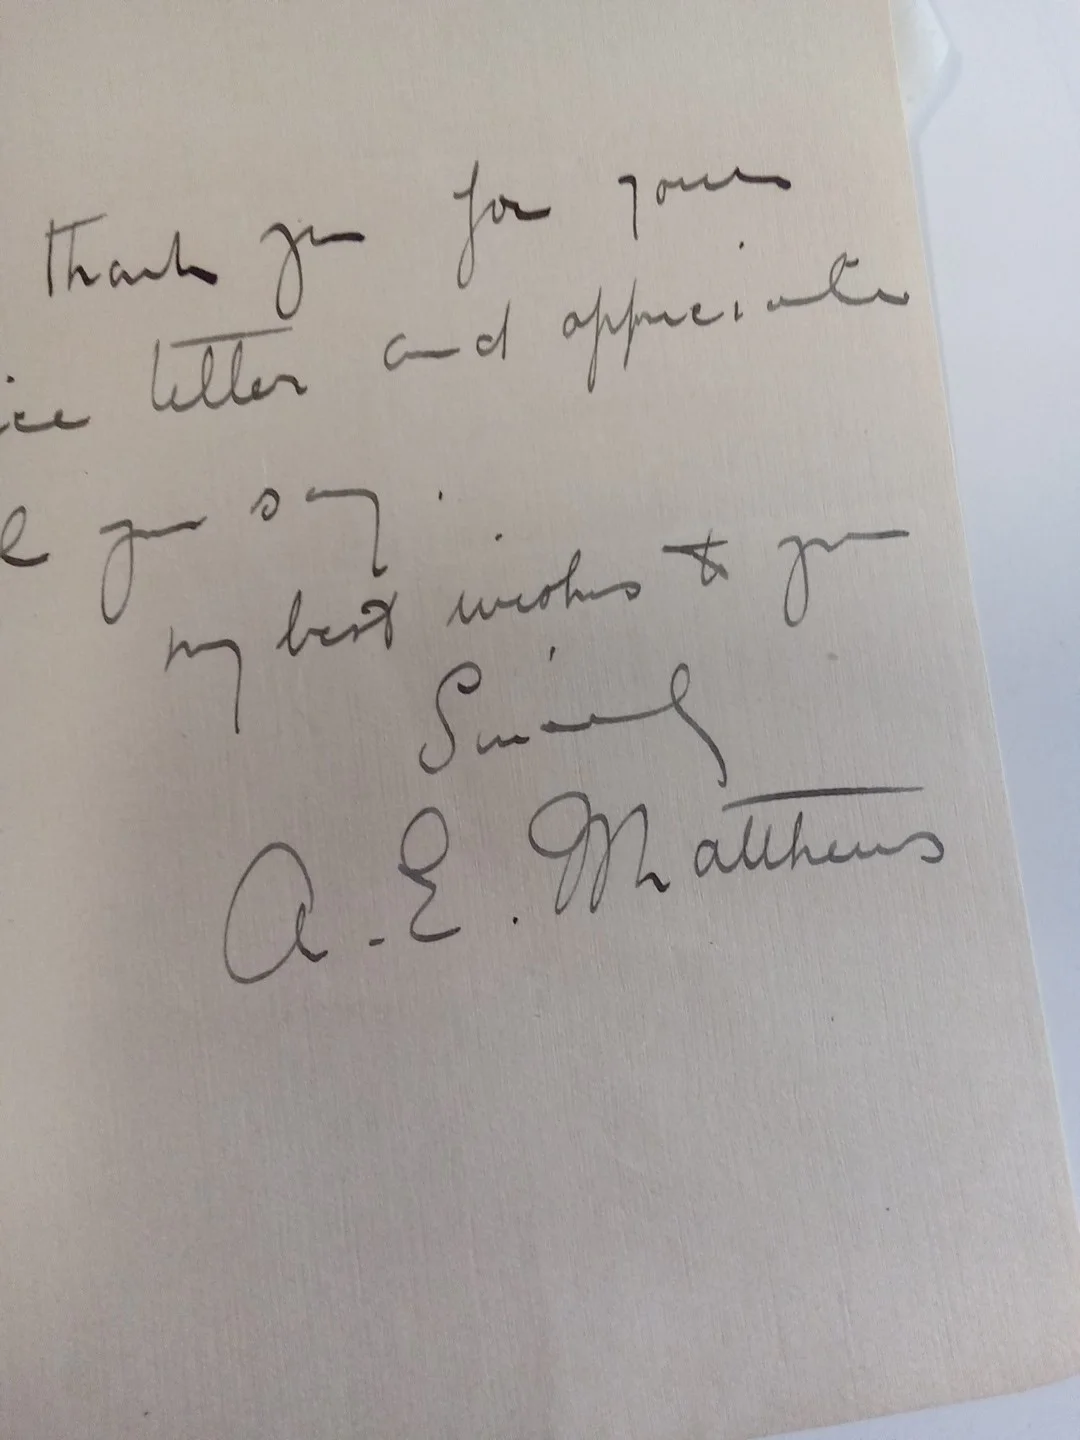 Thank you for your
ice letter and appreciate
l you say.
my best wishes to you
Sincerely
A.E. Matthews